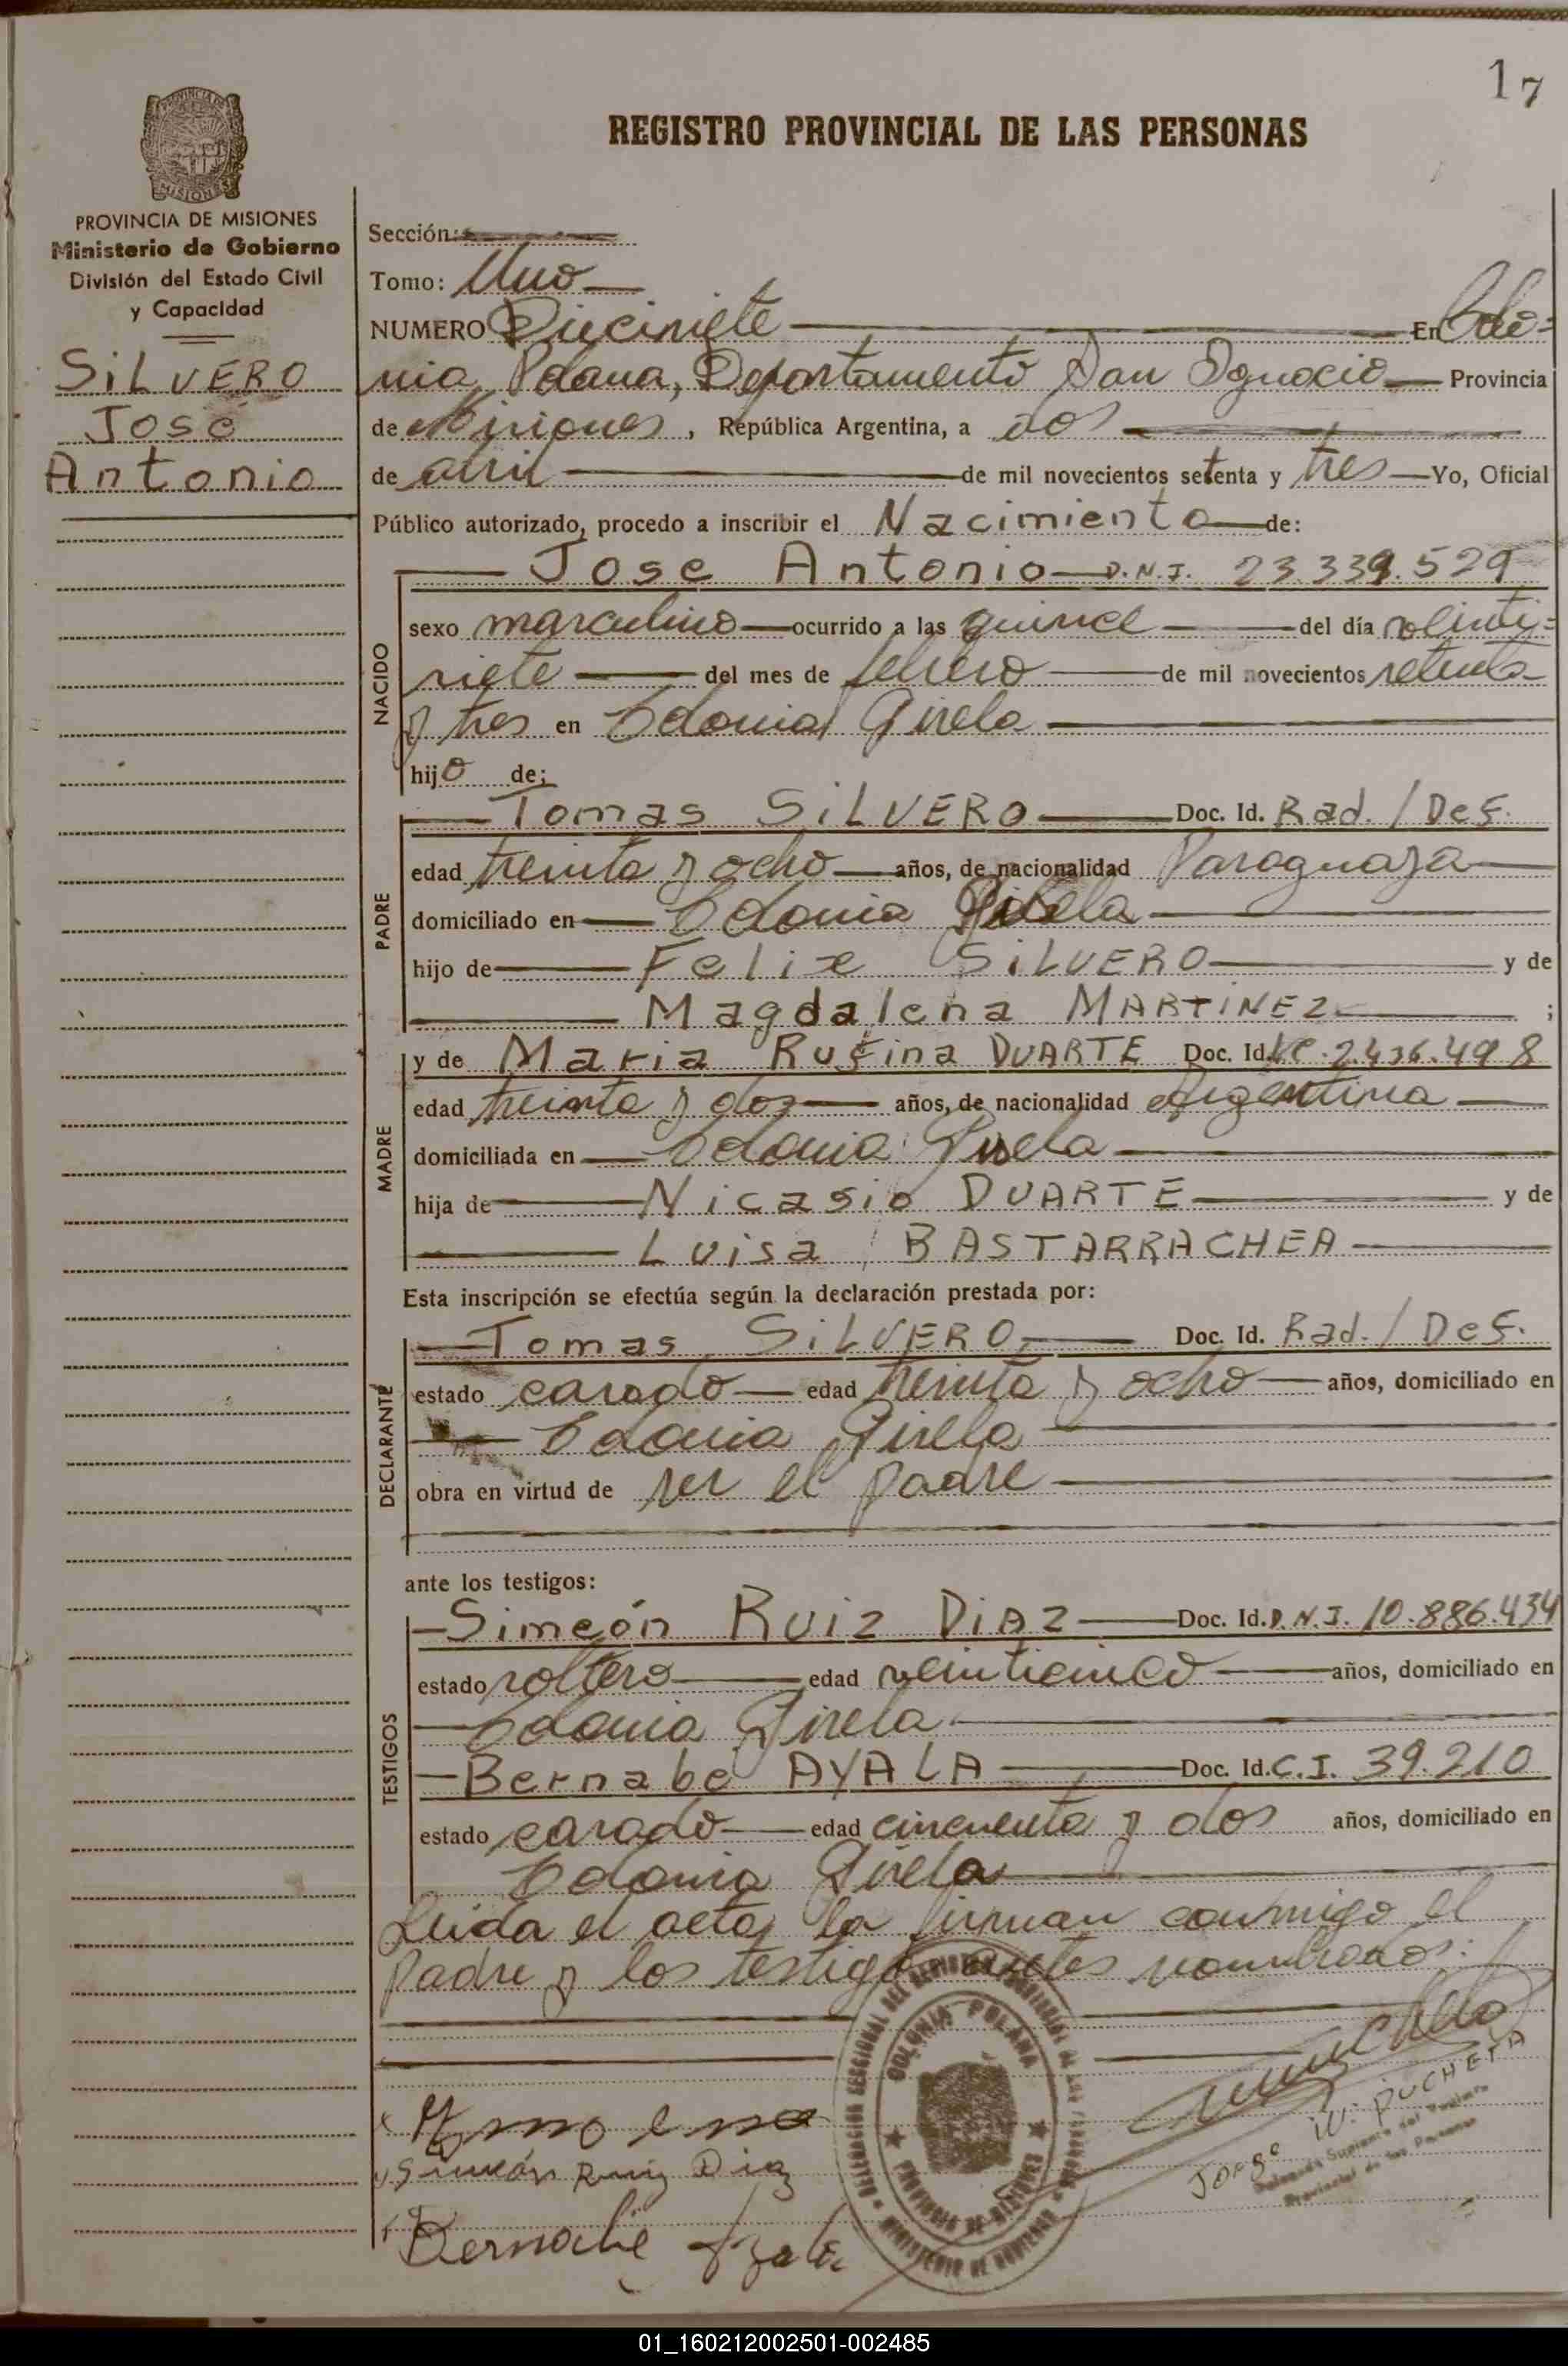 17
REGISTRO PROVINCIAL DE LAS PERSONAS
PROVINCIA DE MISIONES
Ministerio de Gobierno
División del Estado Civil
y Capacidad
SILVERO
José
Antonio
Sección:
Tomo: Uno
NUMERO Diecisiete En Colo-
nia Polana, Departamento San Ignacio Provincia
de Misiones, República Argentina, a dos
de abril de mil novecientos setenta y tres Yo, Oficial
Público autorizado, procedo a inscribir el Nacimiento de:
NACIDO
Jose Antonio D.N.I. 23.339.529
sexo masculino ocurrido a las quince del día veinti-
siete del mes de febrero de mil novecientos setenta
y tres en Colonia Gisela
hijo de;
PADRE
Tomas SILVERO Doc. Id. Rad. / Def.
edad treinta y ocho años, de nacionalidad Paraguaya
domiciliado en Colonia Gisela
hijo de Felix SILVERO y de
Magdalena MARTINEZ ;
MADRE
y de Maria Rufina DUARTE Doc. Id. LC. 2.436.498
edad treinta y dos años, de nacionalidad Argentina
domiciliada en Colonia Gisela
hija de Nicasio DUARTE y de
Luisa BASTARRACHEA
Esta inscripción se efectúa según la declaración prestada por:
DECLARANTE
Tomas SILVERO Doc. Id. Rad. / Def.
estado casado edad treinta y ocho años, domiciliado en
Colonia Gisela
obra en virtud de ser el padre
ante los testigos:
TESTIGOS
Simeón RUIZ DIAZ Doc. Id. D.N.I. 10.886.434
estado soltero edad veinticinco años, domiciliado en
Colonia Gisela
Bernabe AYALA Doc. Id. C.I. 39.210
estado casado edad cincuenta y dos años, domiciliado en
Colonia Gisela
Leida el acta, la firman conmigo el
padre y los testigos antes nombrados:
COLONIA POLANA
PROVINCIA DE MISIONES
MINISTERIO DE GOBIERNO
DELEGACION SECCIONAL DEL REGISTRO PROVINCIAL DE LAS PERSONAS
Simeón Ruiz Diaz
Bernabé Ayala
Jorge W. PUCHETA
Delegado Suplente del Registro
Provincial de las Personas
01_160212002501-002485